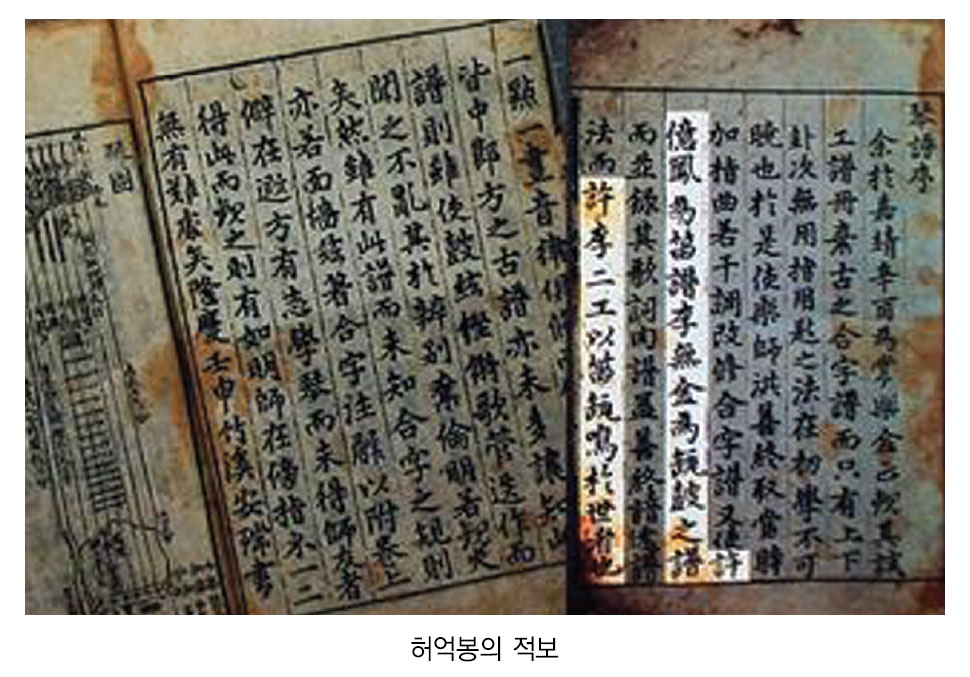 琴譜序
余於嘉靖辛酉爲掌樂僉正其試
工譜冊棄古之合字譜而只有上下
卦次無用指用匙之法在初學不可
曉也於是使樂師洪善終取當時
加指曲若干調改修合字譜又使許
億鳳爲笛譜李無金爲鼓之譜
而並錄其歌詞肉譜盖善終譜譜
法而許李二工以笛鳴於世者也
一點一畫音律俱
皆中郞方之古譜亦未多讓知此
譜則雖使鼓絃歌管迭作而
聞之不亂其於辨別奪倫明若觀火
矣然雖有此譜而未知合字之規則
亦若面墻玆著合字注解以附卷上
僻在遐方有志學琴而未得師友者
得此而觀之則有如明師在傍指示一二
無有難處矣隆慶壬申竹溪安瑺書
허억봉의 적보